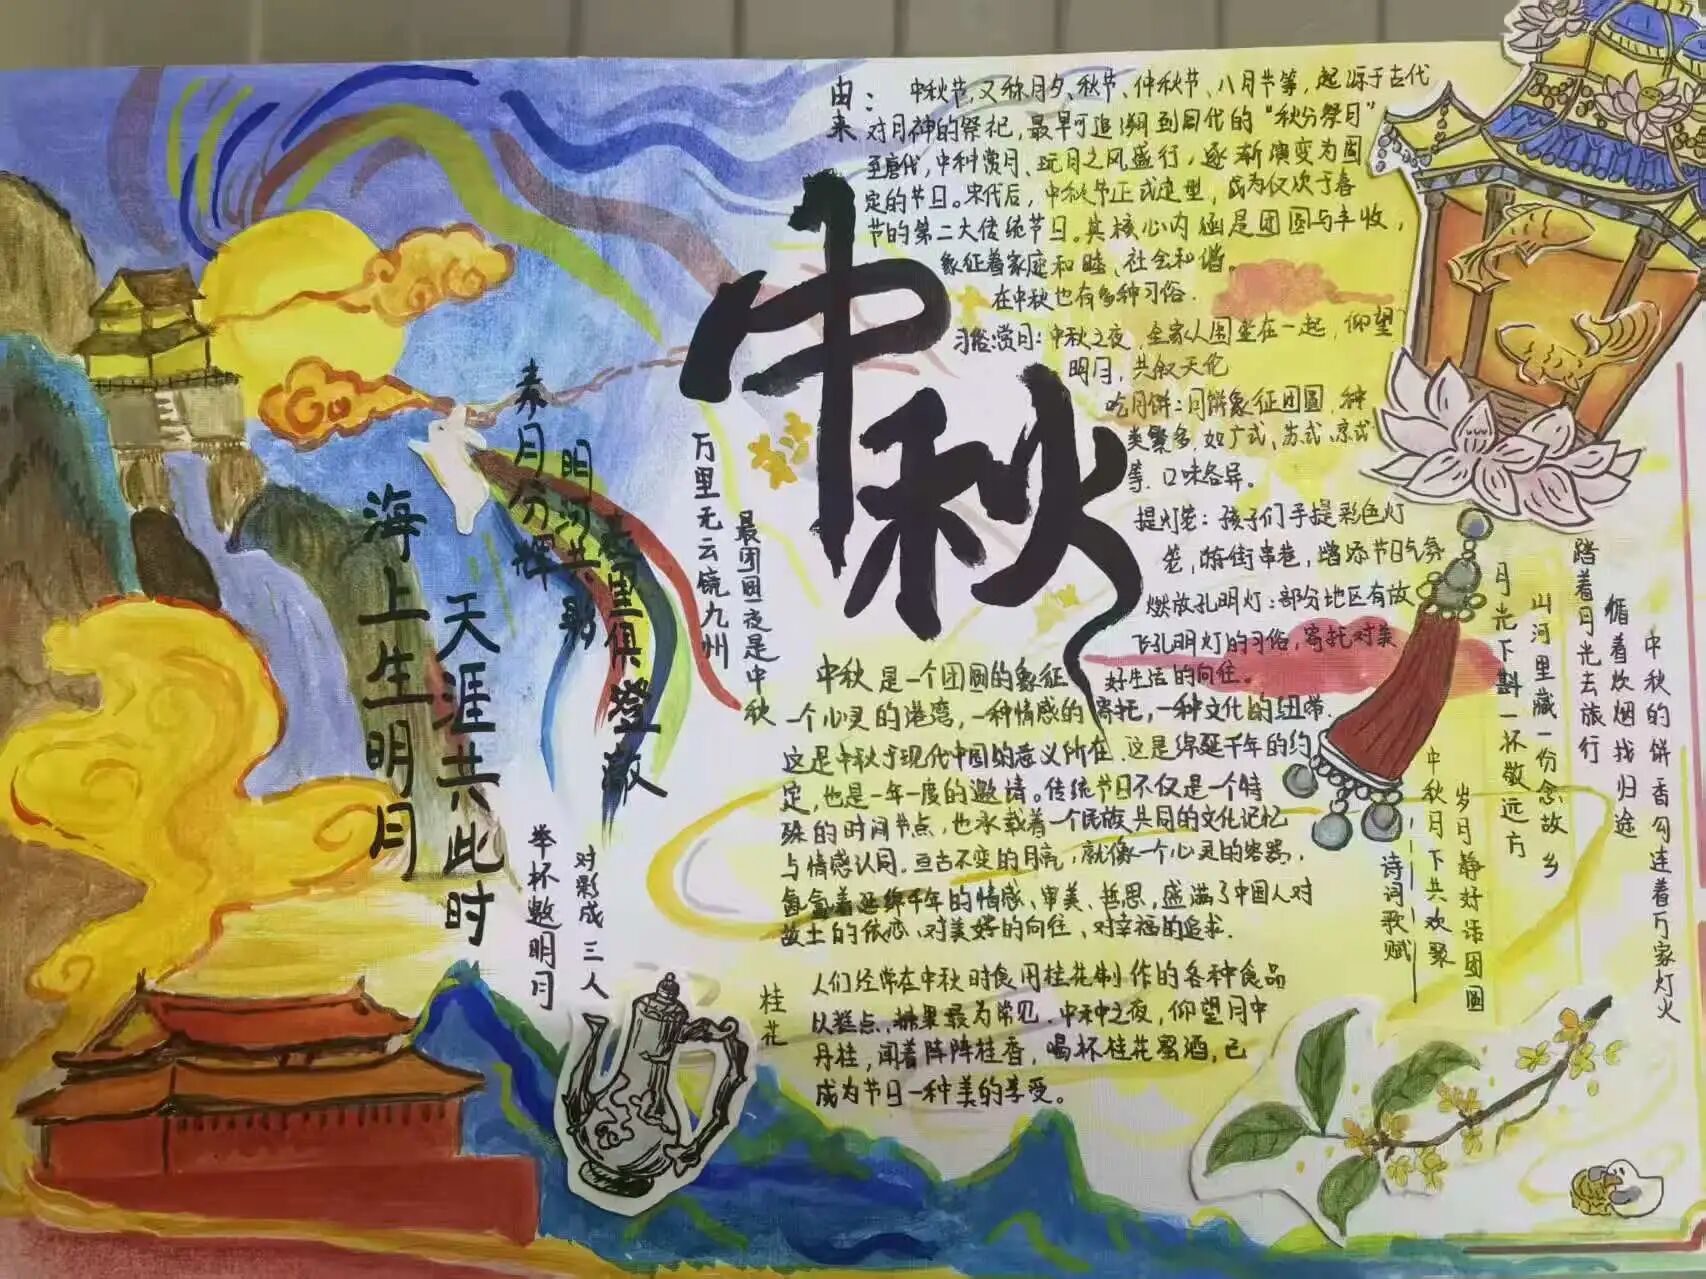 中秋
由来：
中秋节，又称月夕、秋节、仲秋节、八月节等，起源于古代
对月神的祭祀，最早可追溯到周代的“秋分祭月”
至唐代，中秋赏月、玩月之风盛行，逐渐演变为固
定的节日。宋代后，中秋节正式定型，成为仅次于春
节的第二大传统节日。其核心内涵是团圆与丰收，
象征着家庭和睦、社会和谐。
在中秋也有多种习俗.
习俗:赏月：中秋之夜，全家人围坐在一起，仰望
明月，共叙天伦
吃月饼：月饼象征团圆，种
类繁多，如广式、苏式、京式
等，口味各异。
提灯笼：孩子们手提彩色灯
笼，游街串巷，增添节日气氛
燃放孔明灯：部分地区有放
飞孔明灯的习俗，寄托对美
好生活的向往。
中秋是一个团圆的象征
一个心灵的港湾，一种情感的寄托，一种文化的纽带.
这是中秋于现代中国的意义所在.这是绵延千年的约
定，也是一年一度的邀请。传统节日不仅是一个特
殊的时间节点，也承载着一个民族共同的文化记忆
与情感认同.亘古不变的月亮，就像一个心灵的容器，
氤氲着延绵千年的情感、审美、哲思，盛满了中国人对
故土的依恋、对美好的向往、对幸福的追求.
桂花
人们经常在中秋时食用桂花制作的各种食品
以糕点、糖果最为常见.中秋之夜，仰望月中
丹桂，闻着阵阵桂香，喝杯桂花蜜酒，已
成为节日一种美的享受。
素月分辉
明河共影
表里俱澄澈
海上生明月
天涯共此时
万里无云镜九州
最团圆夜是中秋
举杯邀明月
对影成三人
中秋的饼香勾连着万家灯火
循着炊烟找归途
踏着月光去旅行
山河里藏一份念故乡
月光下斟一杯敬远方
岁月静好话团圆
中秋月下共欢聚
诗词歌赋